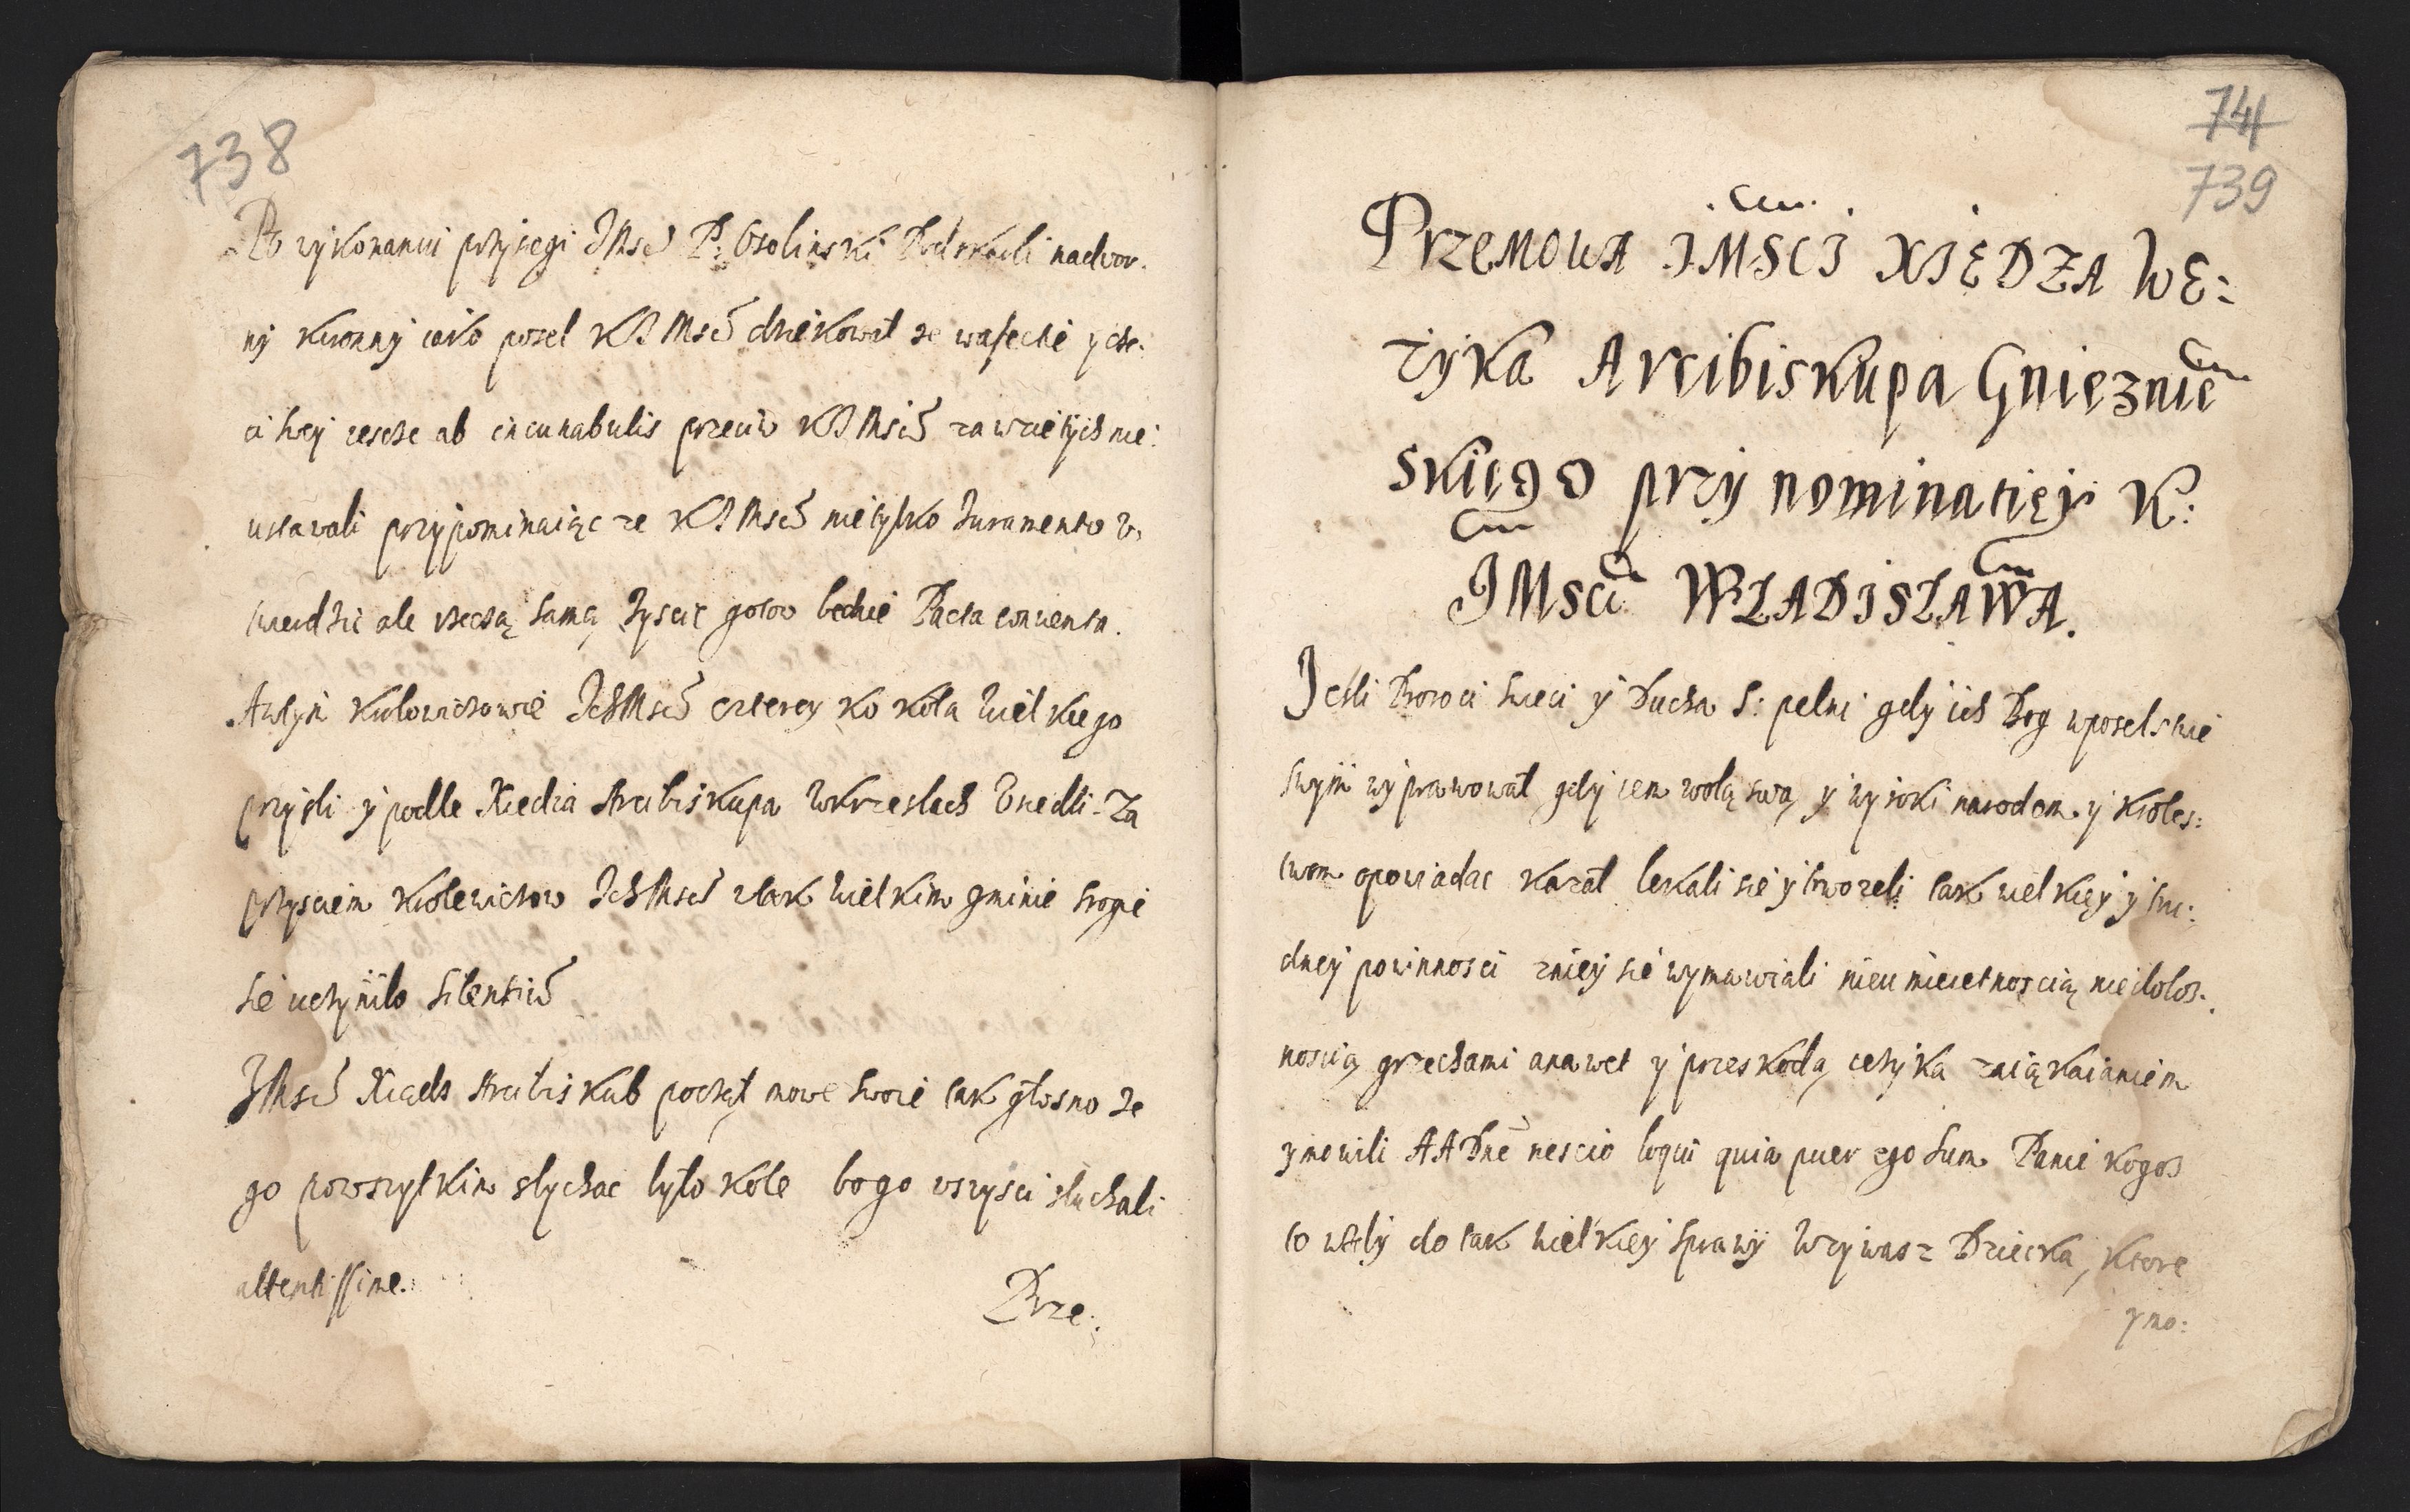 738
Po wykonaniu przysiegi JMsci P: Osolinski Podskarbi nadwor:
ny Kuronny iako posel KJMsci dziekowal ze wasecie y che:
ci swey iescze ab incunabulis przeciw KJMsci zawzietych nie:
ustawali przypominaiąc ze KJMsci nie tylko Juramento
twerdzic ale rzeczą samą zyscic gotow bedzie Pacta conuenta.
A wtym Krolowiczowie JchMsci czterey ko kola wielkiego
przysli y podle Xiedza Arcibiskupa w krzeslach Usiedli. Za
przysciem Krolewiczow JchMsci w tak wielkim gminie srogie
sie uczynilo silentiu
JMsci Xiądz Arcibiskub począl mowe swoie tak glosno ze
go powszytkim slychac bylo kole bo go wszysci sluchali
attentissime.
Prze:
741
739
PrzeMOWA JMSCI XIĘDZA WE:
zyka Arcibiskupa Gnieznie
skiego przy nominatięy K:
JMSci WŁADISŁAWA.
Jesli Proroci swieci y Ducha S: pelni gdy ich Bog w poselstwie
swym wyprawowal gdy iem wolą swą y wyroki narodom y Kroles:
twom opowiadac kazal lekali sie y trwozeli tak wielkięy y tru:
dnej powinnosci z niey sie wymawiali nieumieietnoscią nie dolos:
noscią grzechami a nawet y przeskodą ięzyka zaiąkaianiem
y mowili AA Dne nescio loqui quia puer ego sum Panie kogos
to wzdy do tak wielkiey sprawy wzywasz Dziecka, ktore
y mo: